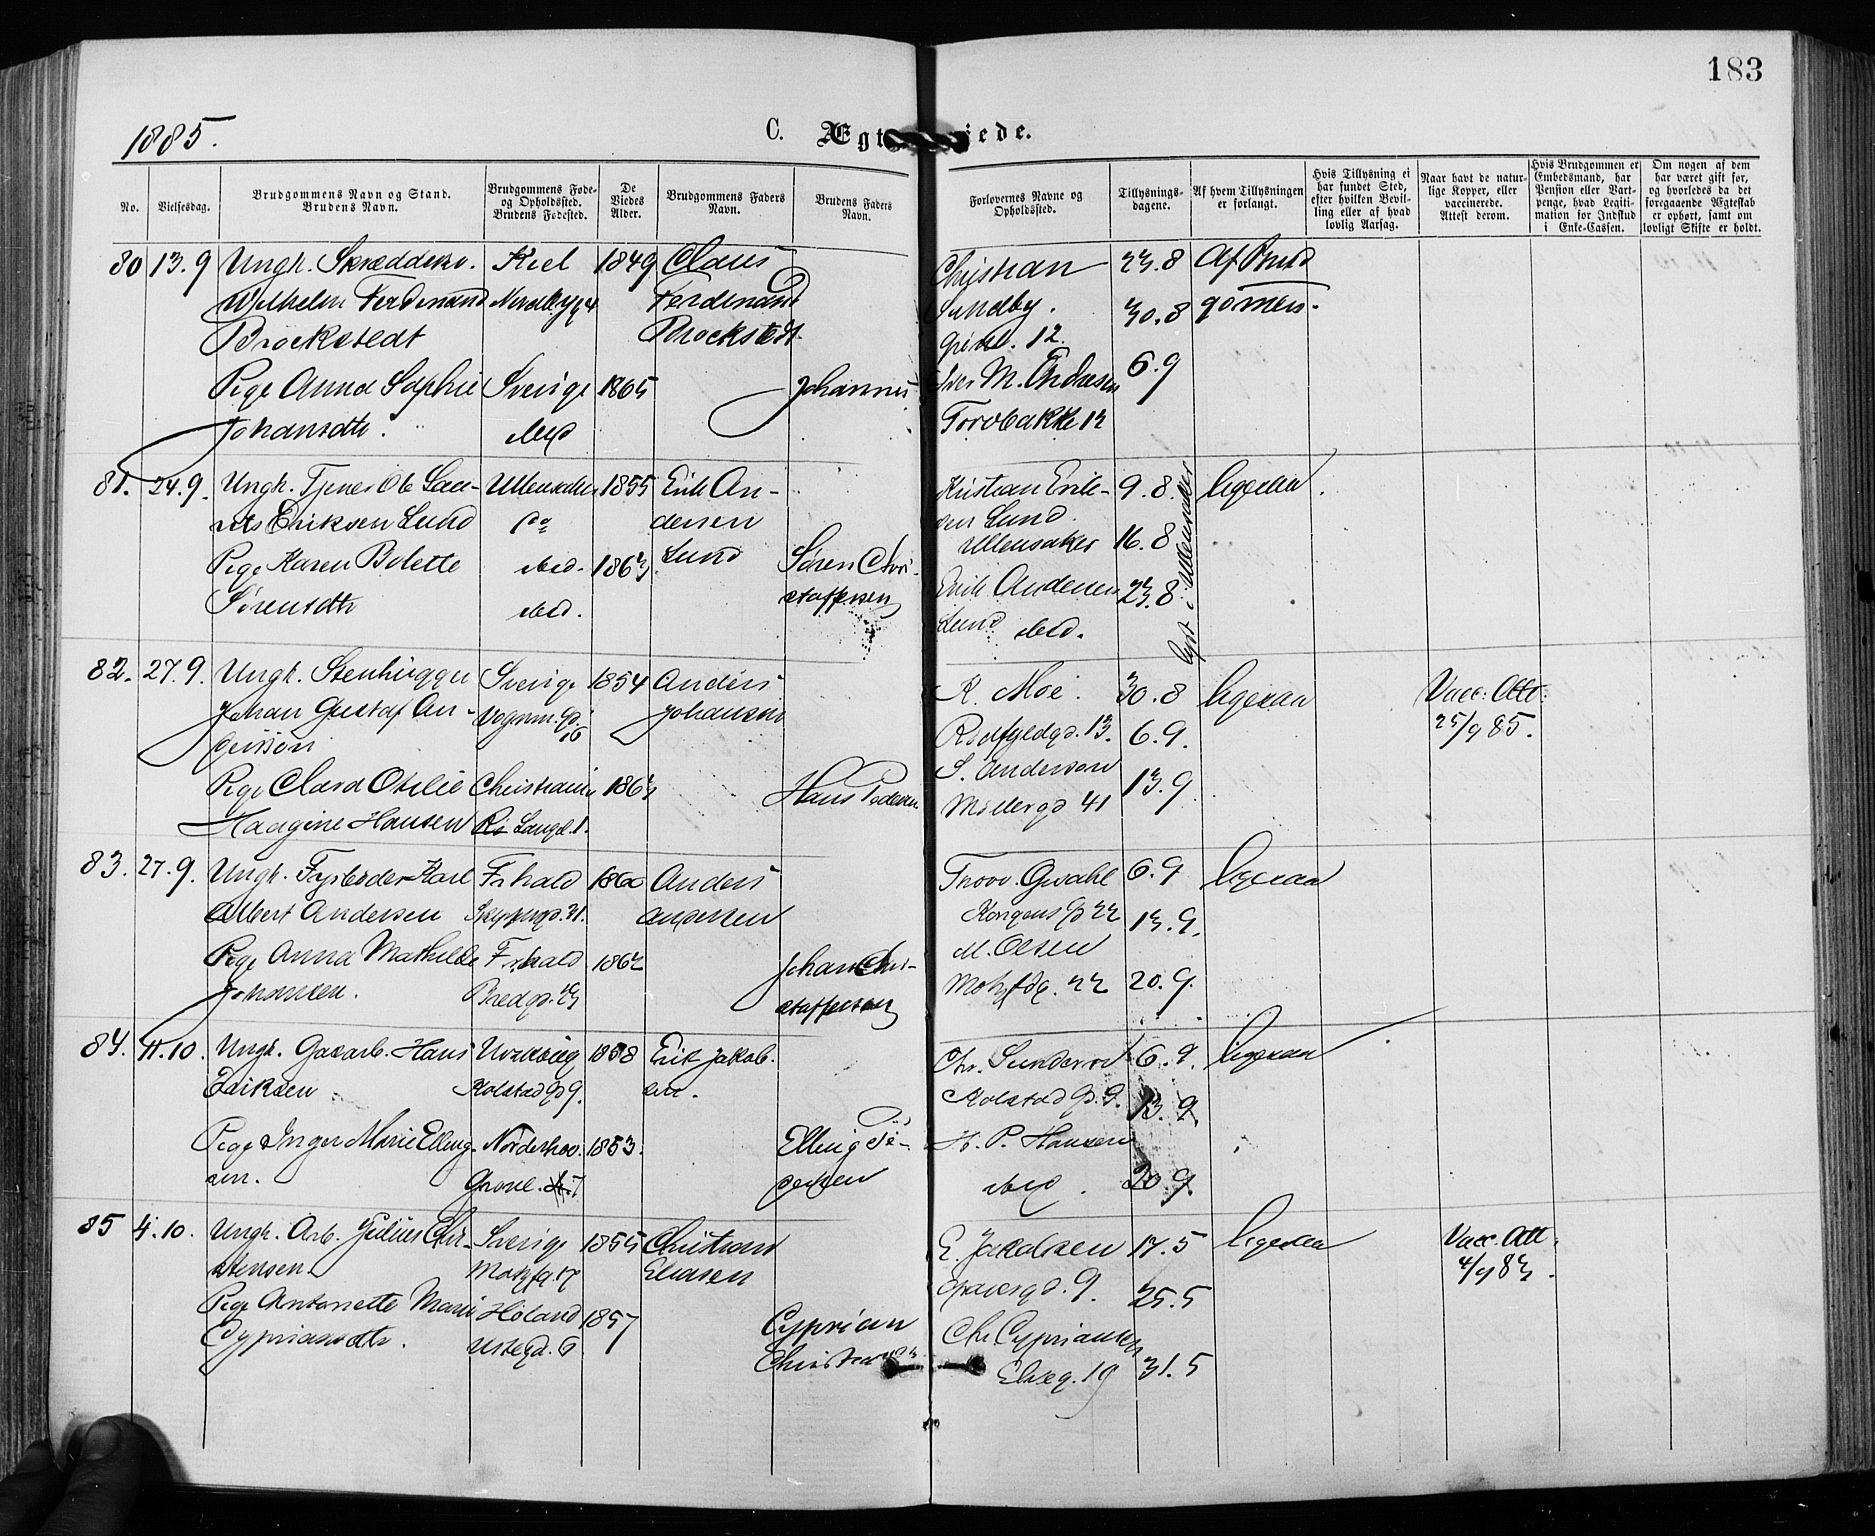 183
1885.
C. Ægt jede.
No.
Vielsesdag.
Brudgommens Navn og Stand.
Brudens Navn.
Brudgommens Føde-
og Opholdssted.
Brudens Fødested.
De
Viedes
Alder.
Brudgommens Faders
Navn.
Brudens Faders
Navn.
Forlovernes Navne og
Opholdssted.
Tillysnings-
dagene.
Af hvem Tillysningen
er forlangt.
Hvis Tillysning ei
har fundet Sted,
efter hvilken Bevil-
ling eller af hvad
lovlig Aarsag.
Naar havt de natur-
lige Kopper, eller
vaccinerede.
Attest derom.
Hvis Brudgommen er
Embedsmand, har
Pension eller Vart-
penge, hvad Legiti-
mation for Indskud
i Enke-Cassen.
Om nogen af dem
har været gift før,
og hvorledes da det
foregaaende Ægteskab
er ophørt, samt om
lovligt Skifte er holdt.
80 13.9 Ungk. Skrædder Kiel 1849 Claus
Wilhelm Ferdinand Ferdinand
Brockstedt Brockstedt
Pige Anna Sophie Sverige 1865 Johannes
Johansdtr. ibid
Christian 23.8 Af Brud
Sundby. 30.8 gommen.
Grønl. 12.
Iver M. Andresen 6.9
Torvbakke 12
81. 24.9. Ungk. Tjener Ole Lau- Ullensaker 1855 Erik An-
rits Eriksen Lund dersen
Pige Karen Bolette ibid. 1863 Lund Søren Chri-
Sørensdtr ibid. stoffersen
Kristian Erik- 9.8. ligesaa.
sen Lund
Ullensaker 16.8
Erik Andersen 23.8
Lund ibid.
lyst i Ullensaker
82. 27.9. Ungk. Stenhugger Sverige 1854 Anders
Johan Gustaf An- Vognm.gd. 16 Johansen
dersson
Pige Clara Otilie Christiania 1863 Hans Pedersen
Haagine Hansen Langl. 1.
K. Moe. 30.8 ligesaa Vacc. Att.
Rødfyldgd. 13. 6.9. 25/9 85.
S. Anderson 13.9
Møllergd 41
83. 27.9. Ungk. Fyrbøder Karl Frhald 1860 Anders
Albert Andersen Skippergd. 31. Andersen
Pige Anna Mathilde Frhald 1862 Johan Chri-
Johansen. Bredgd. stoffersen
6.9 ligesaa
Kongens Gd 22 13.9.
M. Olsen
Motzfdg. 22 20.9.
84. 11.10. Ungk. Gasarb. Hans 1858 Erik Jakob-
Eriksen Kolstad Gd 9. sen.
Pige Inger Marie Elling- Norderhov. 1853. Elling Pe-
sen. Grønl. dersen
Chr. Sundered 6.9. ligesaa
Kolstad Gd. 9. 13.9
H. P. Hansen
ibid. 20.9
85 4.10. Ungk. Arb. Julius Chri- Sverige 1855 Christian
stensen Motzfg. 17 Eliasen
Pige Antonette Marie Høland 1857 Cyprian
Cypriansdtr. Ustegd. 6 Christensen
E. Jakobsen 17.5 ligesaa Vacc. Att.
9. 25.5 4/9 83.
Chr. Cypriansen
Elveg. 19 31.5